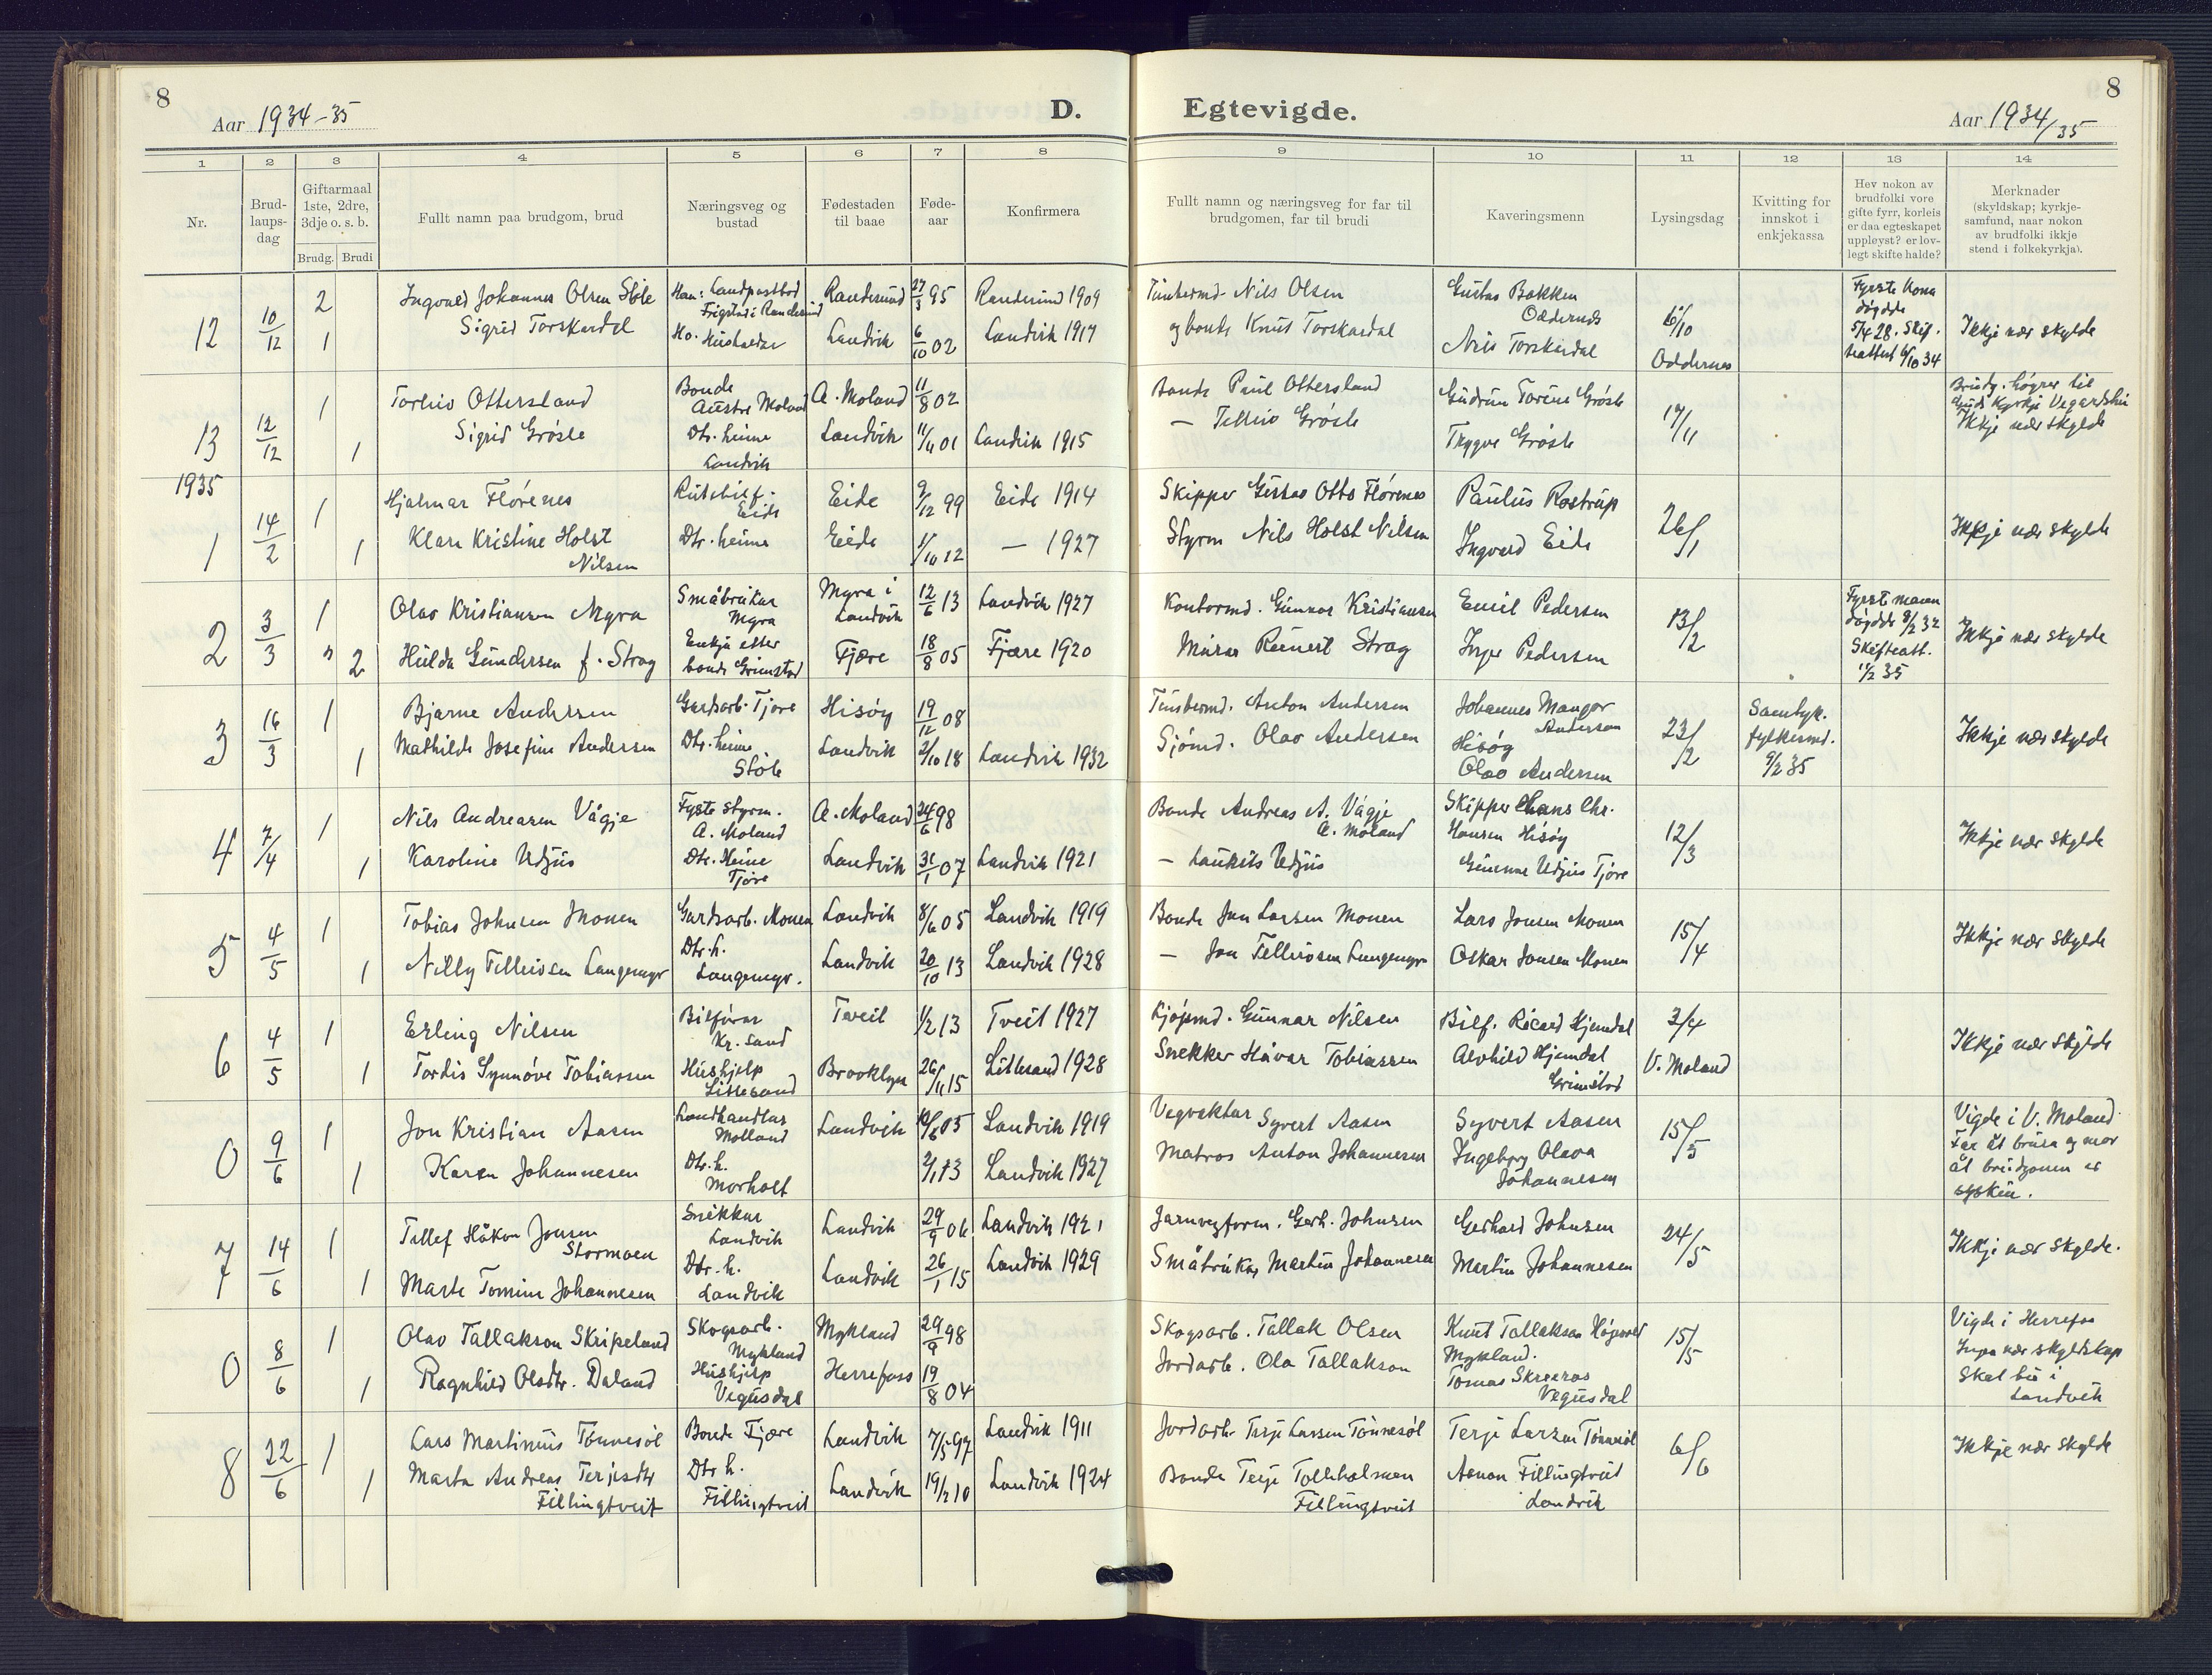 8
Aar 1934-35
D.
Egtevigde.
Aar 1934/35
8
1 2 3 4 5 6 7 8 9 10 11 12 13 14
Nr.
Brud-laups-dag
Giftarmaal 1ste, 2dre, 3dje o. s. b.
Brudg. Brudi
Fullt namn paa brudgom, brud
Næringsveg og bustad
Fødestaden til baae
Føde-aar
Konfirmera
Fullt namn og næringsveg for far til brudgomen, far til brudi
Kaveringsmenn
Lysingsdag
Kvitting for innskot i enkjekassa
Hev nokon av brudfolki vore gifte fyrr, korleis er daa egteskapet uppløyst? er lov-legt skifte halde?
Merknader (skyldskap; kyrkje-samfund, naar nokon av brudfolki ikkje stend i folkekyrkja).
12 10/12 2 Ingvald Johannes Olsen Støle Han: Landpostbod Frigstad i Randesund Randesund 27/3 95 Randesund 1909 Timbermd. Nils Olsen Gustav Bakken Oddernes 6/10 Oddernes Fyrste kona døydde 5/4 28. Skifteattest 6/10 34 Ikkje nær skylde
1 Sigrid Torskardal Ho. Hushaldar Landvik 6/10 02 Landvik 1917 og bonde Knut Torskardal Nils Torskardal
13 12/12 1 Torleiv Ottersland Bonde Austre Moland A. Moland 11/8 02 Bonde Paul Ottersland Gudrun Torine Grøsle 17/11 Brudg. høyrer til Guds Kyrkje Vegårdshei Ikkje nær skylde
1 Sigrid Grøsle Dtr. heime Landvik Landvik 11/11 01 Landvik 1915 — Tellev Grøsle Trygve Grøsle
1935
1 14/2 1 Hjalmar Flórenes Rutebilf. Eide Eide 9/12 99 Eide 1914 Skipper Gustav Otto Flórenes Paulus Rostrup 26/1 Ikkje nær skylde
1 Klara Kristine Holst Nilsen Dtr. heime Eide 1/10 12 — 1927 Styrm Nils Holst Nilsen Ingvald Eide
2 3/3 1 Olav Kristiansen Myra Småbrukar Myra Myra i Landvik 12/6 13 Landvik 1927 Kontormd. Gunnar Kristiansen Emil Pedersen 13/2 Fyrste mannen døydde 8/2 32 Skifteatt. 11/2 35 Ikkje nær skylde
2 Hulda Gundersen f. Strag Enkja etter bonde Grimstad Fjære 18/8 05 Fjære 1920 Murar Reinert Strag Inger Pedersen
3 16/3 1 Bjarne Andersen Gardsarb. Tjore Hisøy 19/12 08 Timbermd. Anton Andersen Johannes Mangor Andersen Hisøy 23/2 Samtyk. fylkesmd. 9/2 35 Ikkje nær skylde
1 Mathilde Josefine Andersen Dtr. heime Støle Landvik 2/10 18 Landvik 1932 Sjómd. Olav Andersen Olav Andersen
4 7/4 1 Nils Andreasen Vågje Fyste styrm. A. Moland A. Moland 24/6 98 Bonde Andreas A. Vågje A. Moland Skipper Hans Chr. Hansen Hisøy 12/3 Ikkje nær skylde
1 Karoline Udjus Dtr. Heime Tjore Landvik 31/1 07 Landvik 1921 — Laurits Udjus Gunnar Udjus Tjore
5 4/5 1 Tobias Johnsen Monen Gardsarb. Monen Landvik 8/6 05 Landvik 1919 Bonde Jon Larsen Monen Lars Jonsen Monen 15/4 Ikkje nær skylde
1 Nilly Tellevsen Langemyr Dtr. h. Langemyr. Landvik 20/10 13 Landvik 1928 — Jon Tellevsen Langemyr Oskar Jonsen Monen
6 4/5 1 Erling Nilsen Bilførar Kr. sand Tveit 1/2 13 Tveit 1927 Kjøpmd. Gunnar Nilsen Bilf. Rikard Hjemdal 3/4 V. Moland Ikkje nær skylde
1 Tordis Synnøve Tobiassen Hushjelp Lillesand Brooklyn 26/11 15 Lillesand 1928 Snekker Håvar Tobiassen Alvhild Hjemdal Grimstad
0 9/6 1 Jon Kristian Aasen Landhandlar Molland Landvik 05 Landvik 1919 Vegvaktar Syvert Aasen Syvert Aasen 15/5 Vigde i V. Moland Far åt brura og mor åt brudgomen er syskin.
1 Karen Johannesen Dtr. h. Morholt 2/1 13 Landvik 1927 Matros Anton Johannesen Ingeborg Olava Johannesen
7 14/6 1 Tellef Håkon Jonsen Stormoen Snekkar Landvik Landvik 29/9 06 Landvik 1921 Jarnvegform. Gerh. Johnsen Gerhard Johnsen 24/5 Ikkje nær skylde.
1 Marte Tomine Johannesen Dtr. h. Landvik Landvik 26/1 15 Landvik 1929 Småbrukar Martin Johannesen Martin Johannesen
0 8/6 1 Olav Tallakson Skripeland Skogsarb. Mykland Mykland 29/9 98 Skogsarb. Tallak Olsen Knut Tallakson Mykland. 15/5 Vigde i Herrefoss Inga nær skyldskap Skal bu i Landvik
1 Ragnhild Olsdtr. Daland Hushjelp Vegusdal Herrefoss 19/8 04 Jordarb. Ola Tallakson Tomas Skreeros Vegusdal
8 22/6 1 Lars Martinius Tønnesøl Bonde Fjære Landvik 7/5 97 Landvik 1911 Jordarb. Terje Larsen Tønnesøl Terje Larsen Tønnesøl 6/6 Ikkje nær skylde
1 Marta Andrea Terjesdtr Fillingtveit Dtr h. Fillingtveit Landvik 19/2 10 Landvik 1924 Bonde Terje Fillingtveit Aanon Fillingtveit Landvik